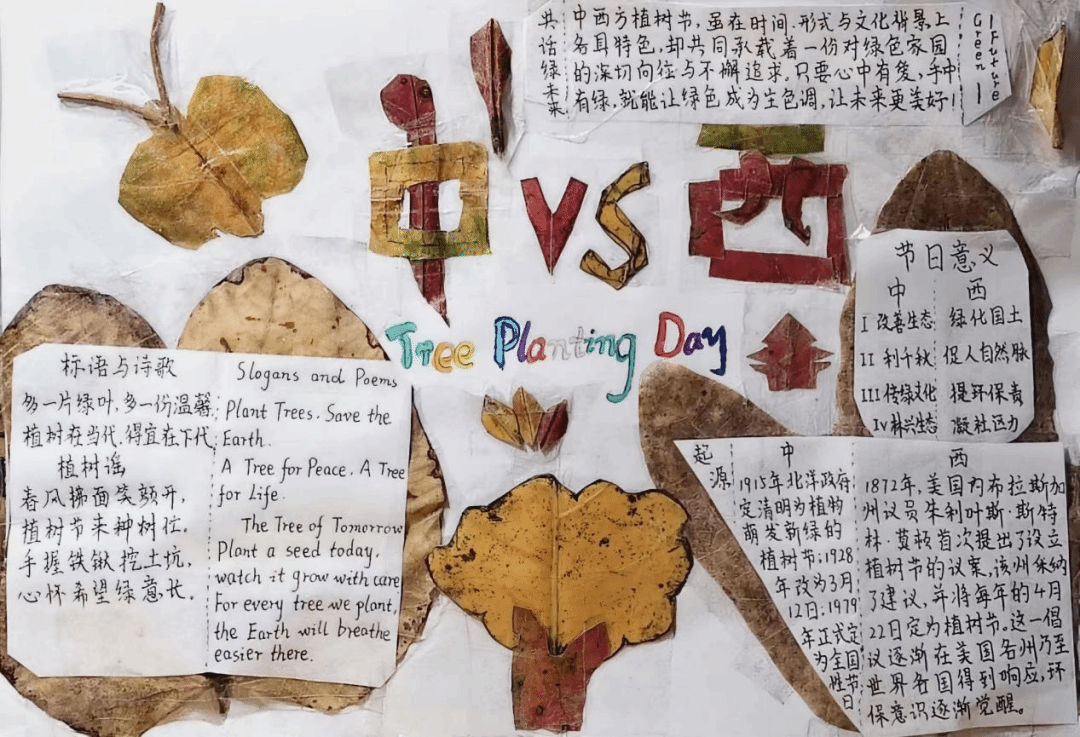 共话绿未来
中西方植树节,虽在时间、形式与文化背景上
各具特色,却共同承载着一份对绿色家园
的深切向往与不懈追求。只要心中有爱,手中
有绿,就能让绿色成为主色调,让未来更美好!
Green Future
中 VS 西
Tree Planting Day
节日意义
中 西
I 改善生态 绿化国土
II 利千秋 促人自然脉
III 传绿文化 提环保责
IV 林兴生态 凝社区力
标语与诗歌
多一片绿叶,多一份温馨;
植树在当代,得宜在下代;
植树谣
春风拂面笑颜开,
植树节来种树忙。
手握铁锹挖土坑,
心怀希望绿意长。
Slogans and Poems
Plant Trees. Save the
Earth.
A Tree for Peace. A Tree
for Life.
The Tree of Tomorrow
Plant a seed today,
watch it grow with care
For every tree we plant,
the Earth will breathe
easier there.
起源
中
1915年北洋政府
定清明为植物
萌发新绿的
植树节;1928
年改为3月
12日;1979
年正式定
为全国
性节
日
西
1872年,美国内布拉斯加
州议员朱利叶斯·斯特
林·莫顿首次提出了设立
植树节的议案,该州采纳
了建议,并将每年的4月
22日定为植树节。这一倡
议逐渐在美国各州乃至
世界各国得到响应,环
保意识逐渐觉醒。